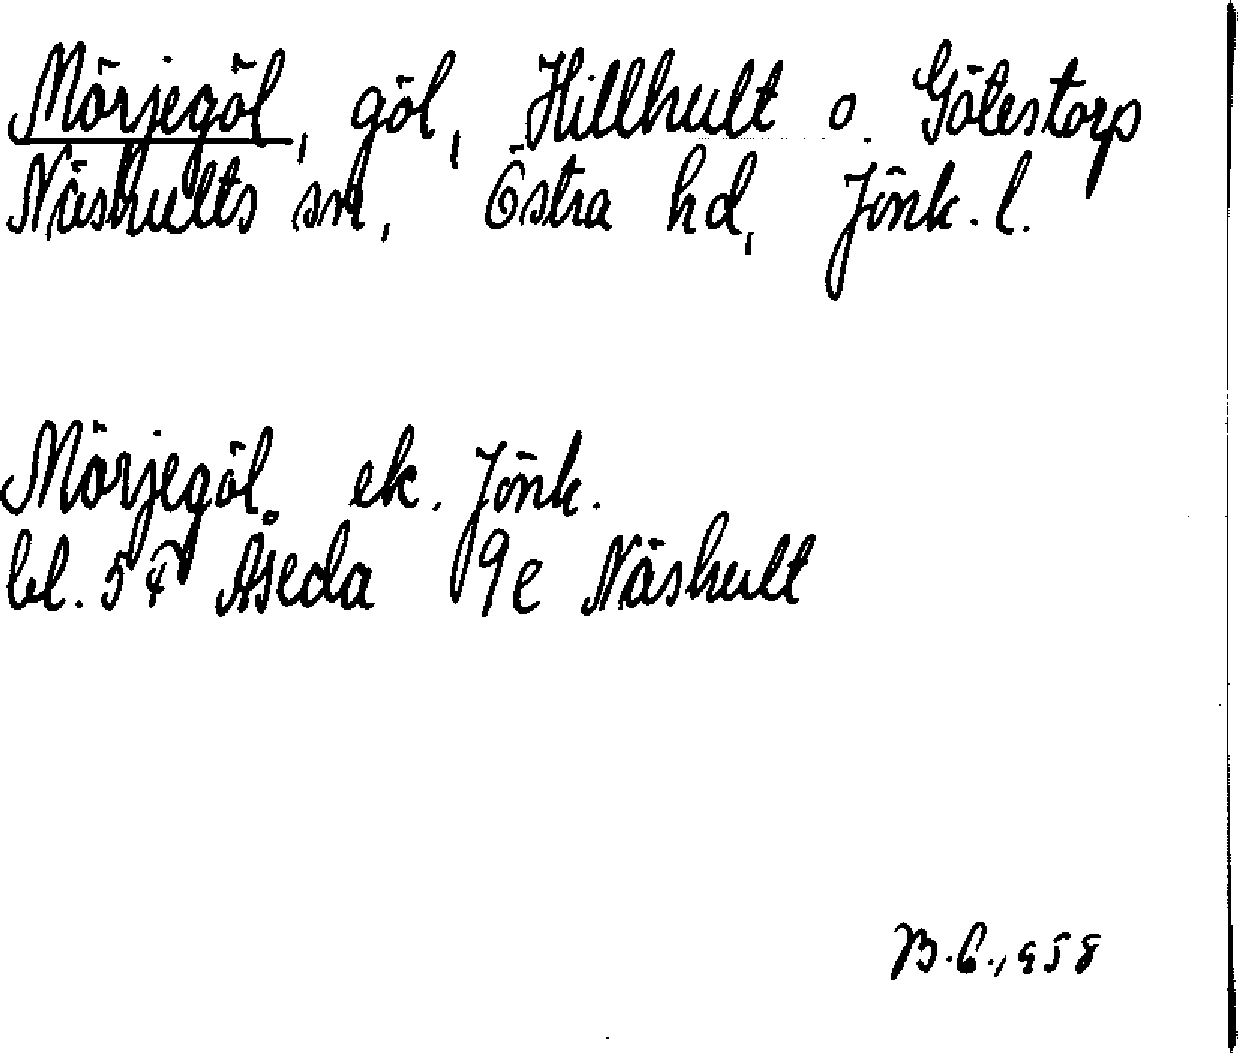 Mörjegöl, göl, Hillhult o. Götestorp
Näshults sn, Östra hd, Jönk. l.
Mörjegöl ek. Jönk.
bl. 5F Åseda 9e Näshult